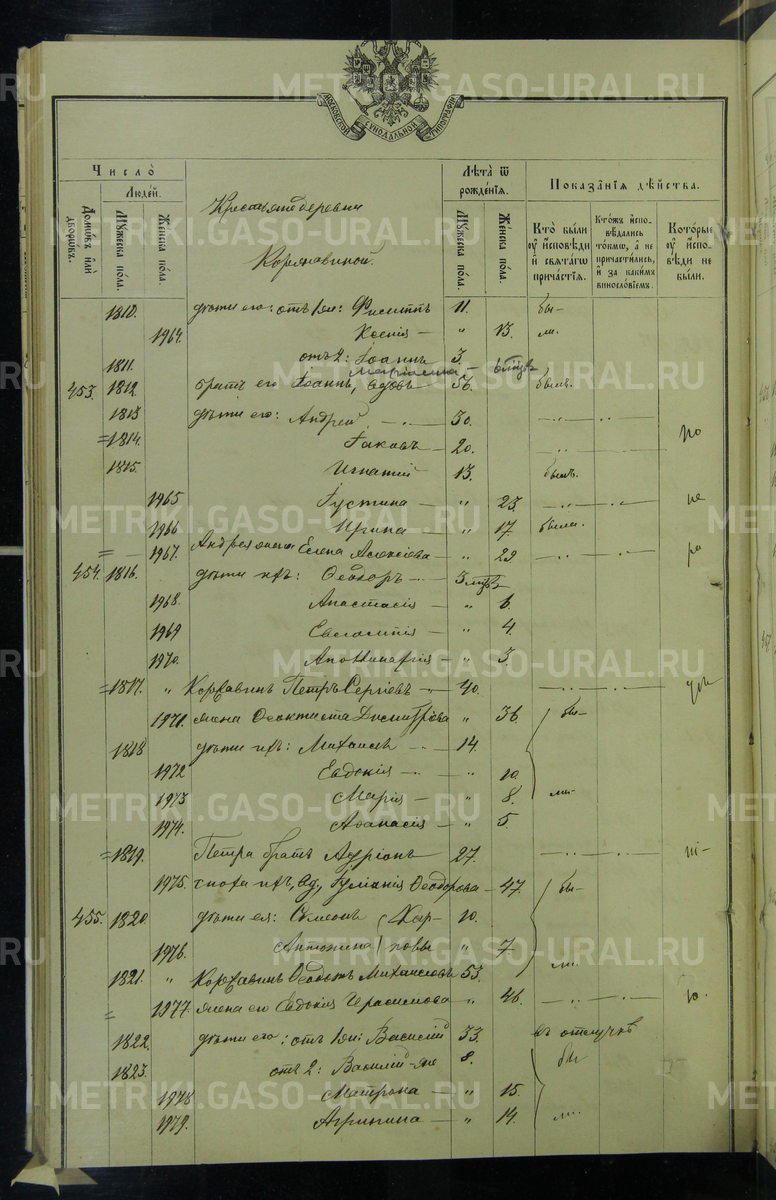 METRIKI.GASO-URAL.RU
МОСКОВСКОЙ СѴНОДАЛЬНОЙ ТИПОГРАФІИ
Число̀ Лѣта̀ ѿ рожде́нїѧ. Показа̑нїѧ дѣ́йства.
Люде́й.
Домѡ́въ и҆лѝ дворѡ́въ. Мꙋ́жеска по́ла. Же́нска по́ла. Крестьяне деревни Коржавиной. Мꙋ́жеска по́ла. Же́нска по́ла. Кто̀ бы́ли ᲂу҆ и҆сповѣ́ди и҆ свѧта́гѡ прича́стїѧ. Кто́жъ и҆спо-вѣ́дались то́кмѡ, а҆ не причасти́лись, и҆ за каки́мъ винослѡ́вїемъ. Кото́рые ᲂу҆ и҆спо-вѣ́ди не бы́ли.
1810. дѣти его: отъ 1ой: Филиппъ 11. бы-
1964. Ксенія — " 13. ли.
1811. отъ 2: Іоаннъ 3.
453. 1812. братъ его Іоаннъ, вдовъ 56. былъ.
1813 дѣти его: Андрей 30.
= 1814. Іаковъ — 20. по
1815. Игнатій — 13. былъ.
1965 Іустина — " 23. не
1966 Ирина — " 17. была.
= 1967. Андрея жена Елена Алексіева — " 29 ра
454. 1816. дѣти ихъ: Ѳеодоръ — 3 мѣс.
1968. Анастасія — " 6.
1969 Евгампія — " 4.
1970. Аполлинарія — " 3.
= 1817. " Коржавинъ Петръ Сергіевъ 40.
1971. жена Ѳеоктиста Димитріева " 36. бы-
1818 дѣти ихъ: Михаилъ 14.
1972 Евдокія — " 10.
1973 Марія — " 8. ли.
1974. Аѳанасія " 5.
= 1819. Петра братъ Адріонъ 27. ні-
1975. сноха ихъ, вд., Іуліанія Ѳеодорова — 47. бы-
455. 1820 дѣти ея: Симеонъ (Хар- 10.
1976. Антонина) " 7 ли.
1821. " Коржавинъ Ѳеодотъ Михаиловъ 53.
= 1977. жена его Евдокія Герасимова " 46. ю.
1822. дѣти его: отъ 1ой: Василій 33. въ отлучкѣ
1823. отъ 2: Василій-же 8. бы
1978 Матрона — " 15.
1979. Агрипина — " 14. ли.